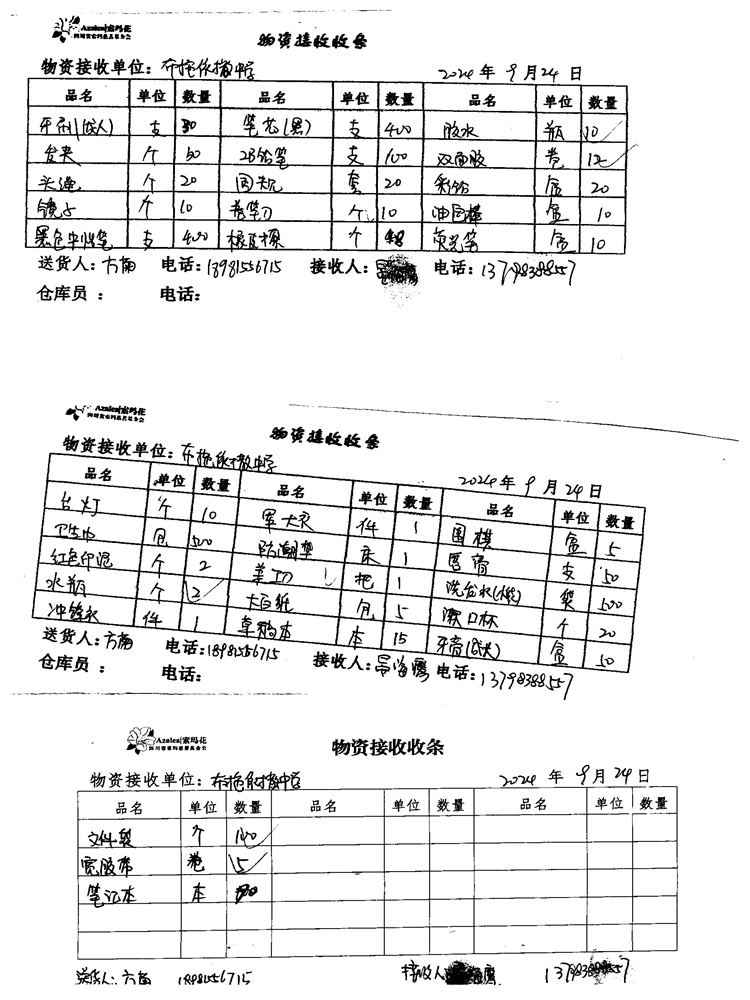 Azalea|索玛花
四川省索玛慈善基金会
物资接收收条
物资接收单位：布拖依撒中学 2024年9月24日
品名 单位 数量 品名 单位 数量 品名 单位 数量
牙刷(成人) 支 笔芯(黑) 支 400 胶水 瓶 10
发夹 个 50 2B铅笔 支 100 双面胶 卷 12
头绳 个 20 圆规 套 20 彩铅 盒 20
镜子 个 10 卷笔刀 个 10 油画棒 盒 10
黑色中性笔 支 400 橡皮擦 个 荧光笔 盒 10
送货人：方南 电话：13981556715 接收人： 电话：13798388557
仓库员： 电话：
Azalea|索玛花
四川省索玛慈善基金会
物资接收收条
物资接收单位：布拖依撒中学 2024年9月24日
品名 单位 数量 品名 单位 数量 品名 单位 数量
台灯 个 10 军大衣 件 1 围棋 盒 5
卫生巾 包 500 防潮垫 床 1 唇膏 支 50
红色印泥 个 2 美工刀 把 1 洗发水(袋) 袋 500
水瓶 个 2 大白纸 包 5 漱口杯 个 20
冲锋衣 件 1 草稿本 本 15 牙膏(成人) 盒 50
送货人：方南 电话：18981556715 接收人： 电话：13798388557
仓库员： 电话：
Azalea|索玛花
四川省索玛慈善基金会
物资接收收条
物资接收单位：布拖依撒中学 2024年9月24日
品名 单位 数量 品名 单位 数量 品名 单位 数量
文件袋 个 100
宽胶带 卷 15
笔记本 本
送货人：方南 18981556715 接收人 13798388557